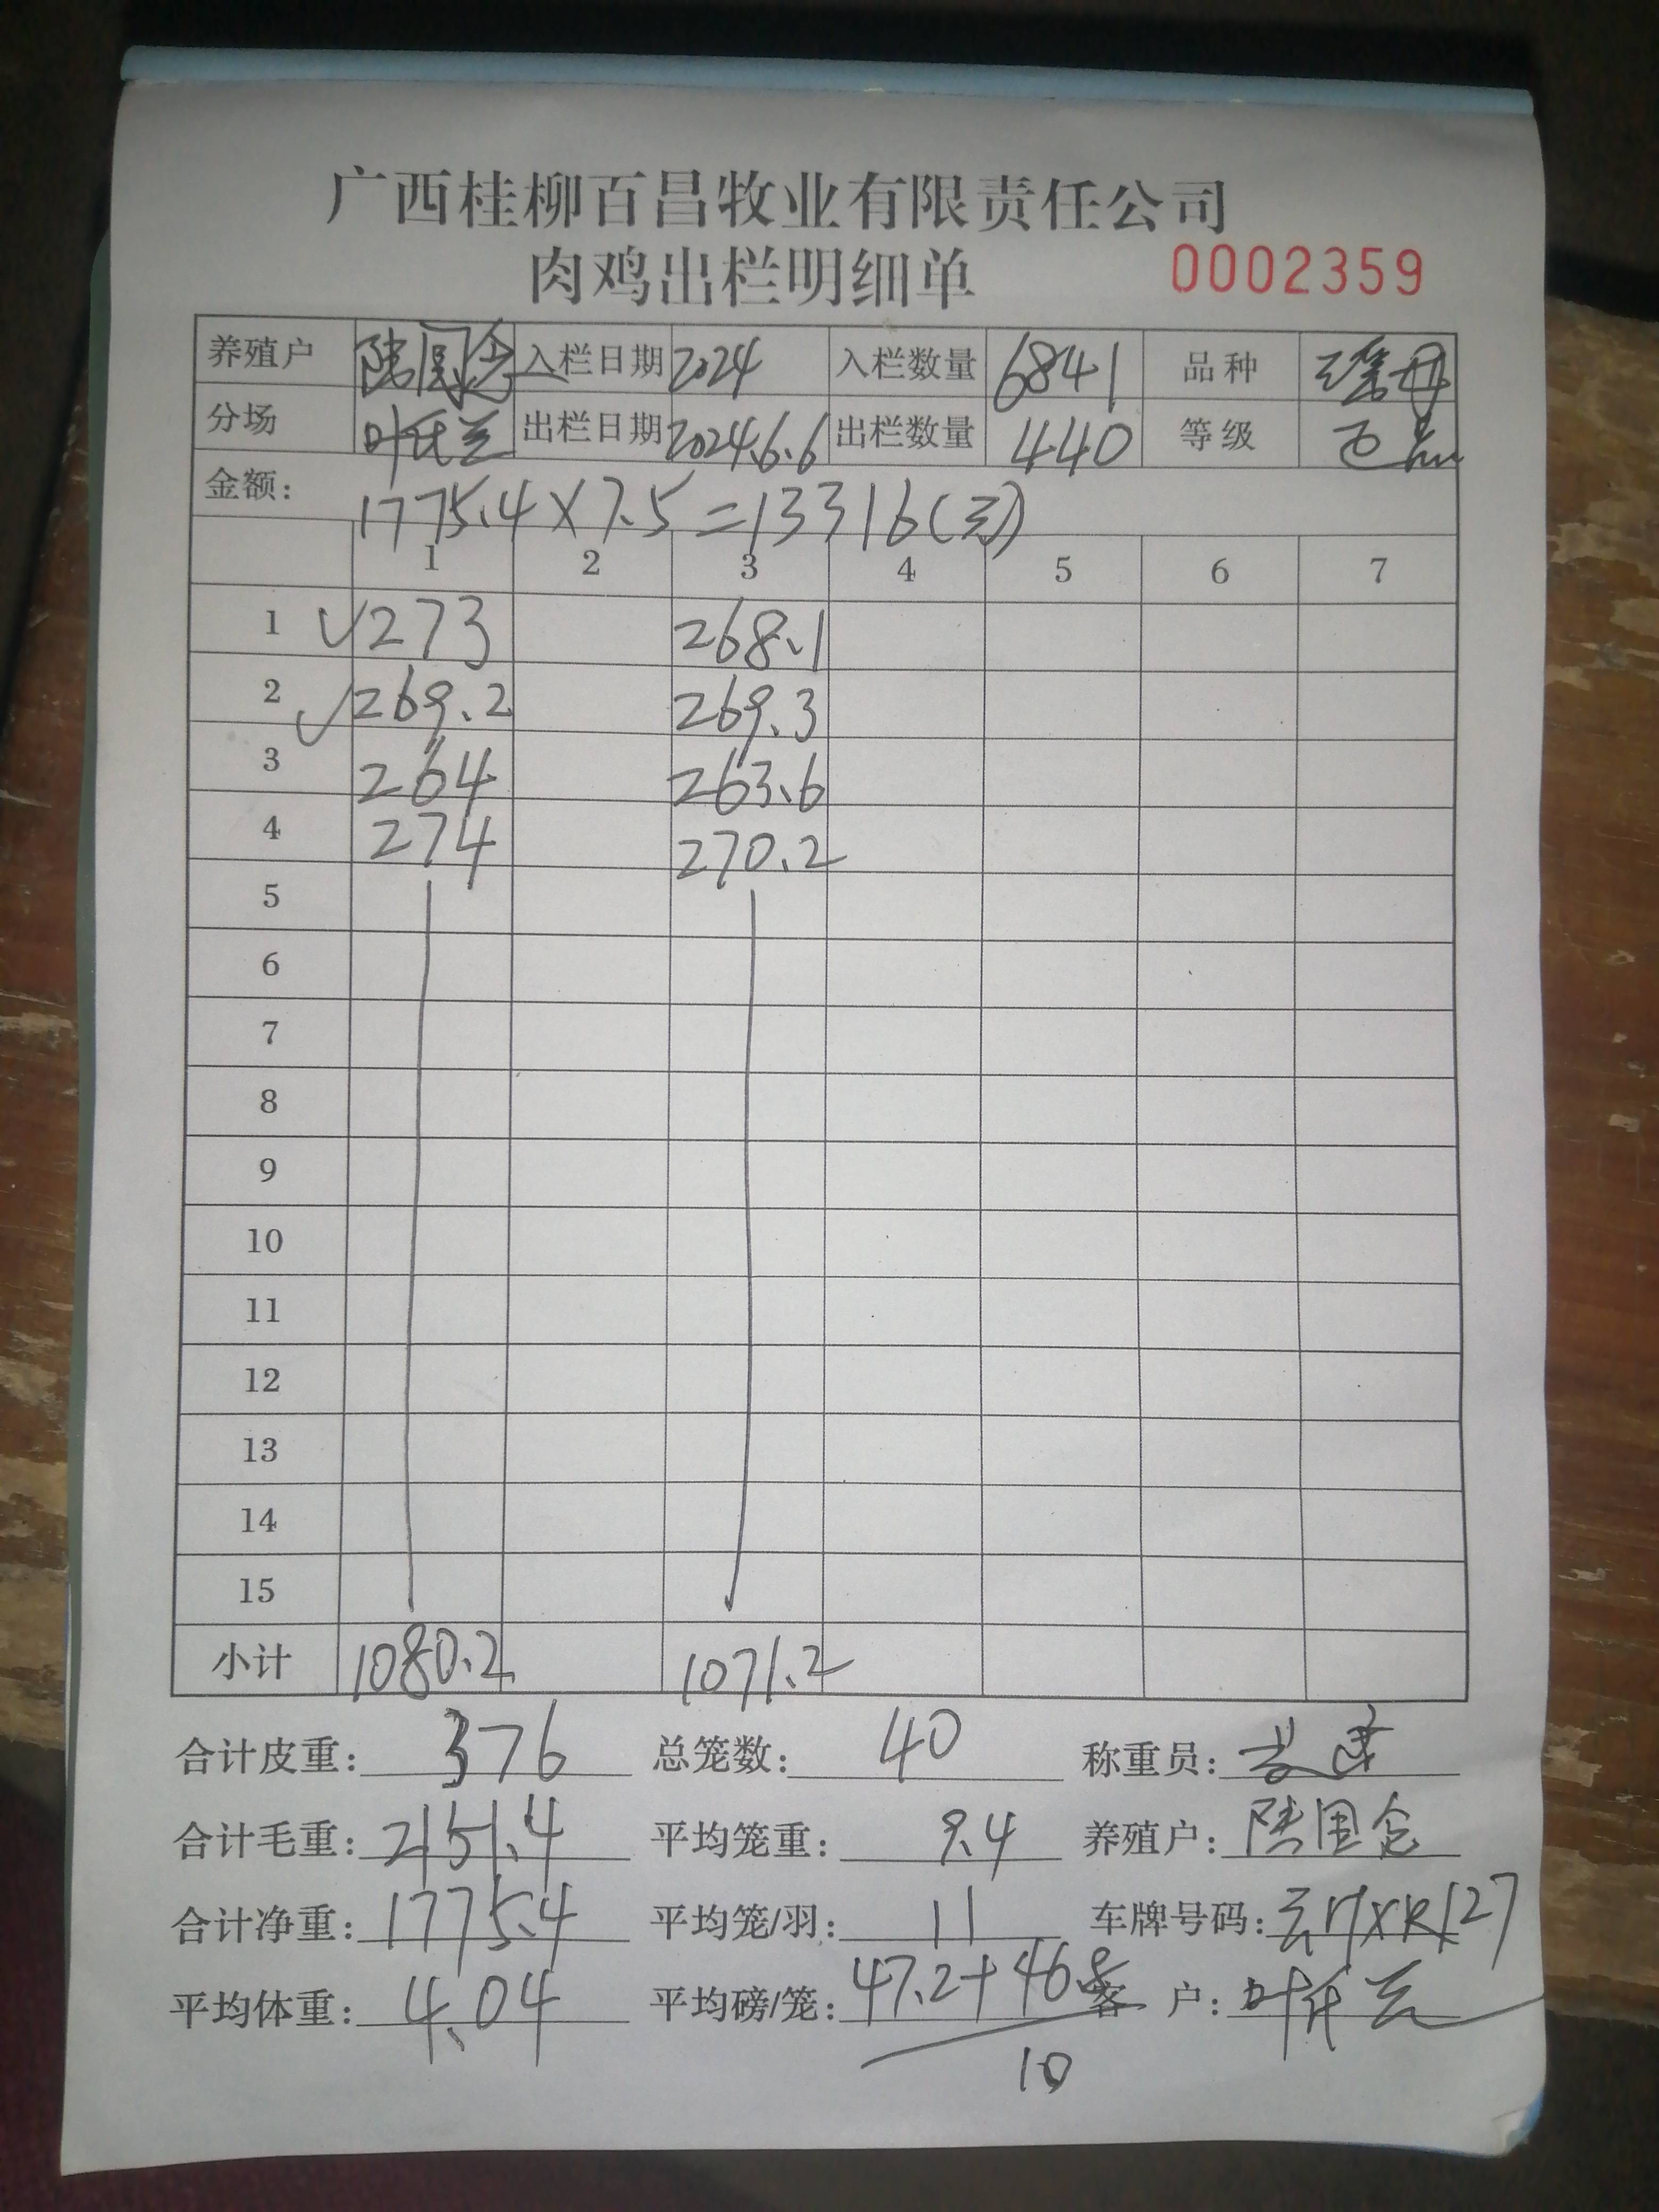 广西桂柳百昌牧业有限责任公司
肉鸡出栏明细单 0002359
养殖户 陆国念 入栏日期 2024 入栏数量 6841 品种 瑶母
分场 出栏日期 2024.6.6 出栏数量 440 等级
金额: 1775.4×7.5=13316(元)
1 2 3 4 5 6 7
1 ✓273 268.1
2 ✓269.2 269.3
3 264 263.6
4 274 270.2
5
6
7
8
9
10
11
12
13
14
15
小计 1080.2 1071.2
合计皮重: 376 总笼数: 40 称重员:
合计毛重: 2151.4 平均笼重: 9.4 养殖户: 陆国念
合计净重: 1775.4 平均笼/羽: 11 车牌号码:
平均体重: 4.04 平均磅/笼: 47.2+46.8 客 户:
10